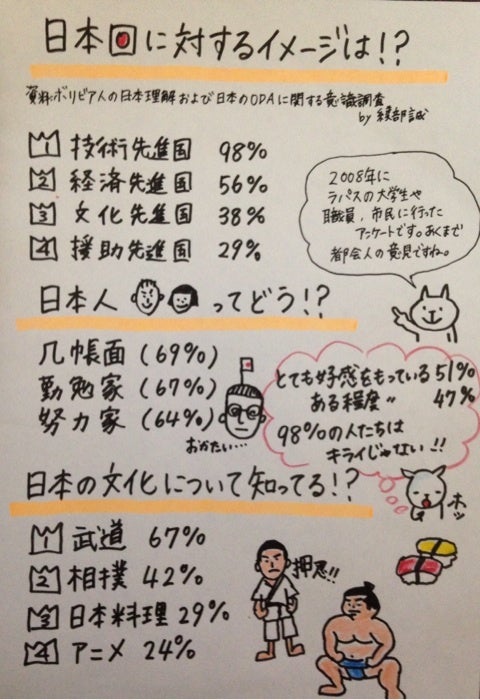 日本国に対するイメージは!?
資料:ボリビア人の日本理解および日本のODAに関する意識調査
by 綾部誠
1 技術先進国 98%
2 経済先進国 56%
3 文化先進国 38%
4 援助先進国 29%
2008年に
ラパスの大学生や
職員、市民に行った
アンケートです。あくまで
都会人の意見ですね。
日本人 ってどう!?
几帳面 (69%)
勤勉家 (67%)
努力家 (64%)
おかたい…
とても好感をもっている 51%
ある程度 〃 47%
98%の人たちは
キライじゃない!!
ホッ
日本の文化について知ってる!?
1 武道 67%
2 相撲 42%
3 日本料理 29%
4 アニメ 24%
押忍!!